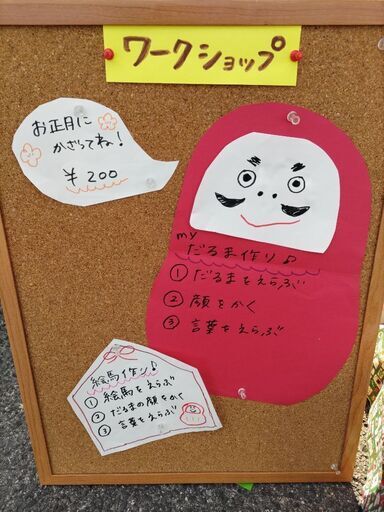 ワークショップ
お正月に
かざってね！
¥200
my
だるま作り♪
① だるまをえらぶ
② 顔をかく
③ 言葉をえらぶ
絵馬作り♪
① 絵馬をえらぶ
② だるまの顔をかく
③ 言葉をえらぶ